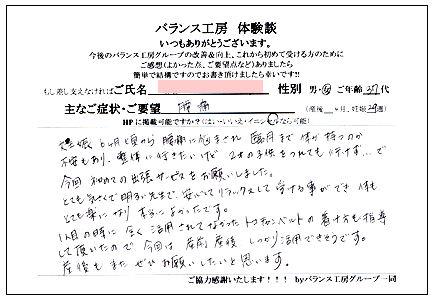 バランス工房 体験談
いつもありがとうございます。
今後のバランス工房グループの改善&向上、これから初めて受ける方のために
ご感想(よかった点、ご要望点など)ありましたら
簡単で結構ですのでお書き頂けましたら幸いです!!
もし差し支えなければご氏名 性別 男・女 ご年齢 37代
主なご症状・ご要望 腰痛 (産後 ヶ月、妊娠 週)
HPに掲載可能ですか?(はい・いいえ・イニシャルなら可能)
妊娠 ヶ月頃から腰痛に悩まされ 臨月まで体が持つのか
不安もあり、整体に行きたいけど 2才の子供をつれても行けず…で
今回 初めての出張サービスをお願いしました。
とても気さくで明るい先生で、安心してリラックスして受ける事ができ 体も
とても楽になり 本当によかったです。
1人目の時に全く活用されてなかったトコチャンベルトの着け方も指導
して頂いたので、今回は産前産後 しっかり活用できそうです。
産後も また ぜひお願いしたいと思います。
ご協力感謝いたします!!! byバランス工房グループ一同